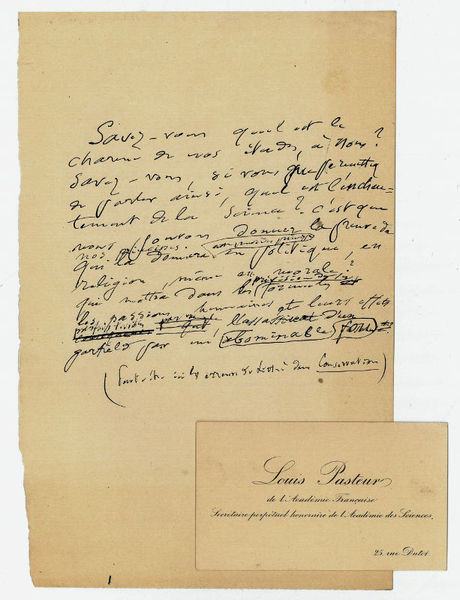 Savez-vous quel est le
charme de nos études, à nous?
Savez-vous, si vous me permettez
de parler ainsi, quel est l'enchan-
tement de la Science? c'est que
nous pouvons Donner la preuve de
nos principes.
Qui la donnera en politique, en
religion, même en morale?
qui mettra dans les
les passions humaines et leurs effets
garfield par un abominable fou
(Peut-être Conservation)
Louis Pasteur
de l'Académie Française
Secrétaire perpétuel honoraire de l'Académie des Sciences.
25, rue Dutot